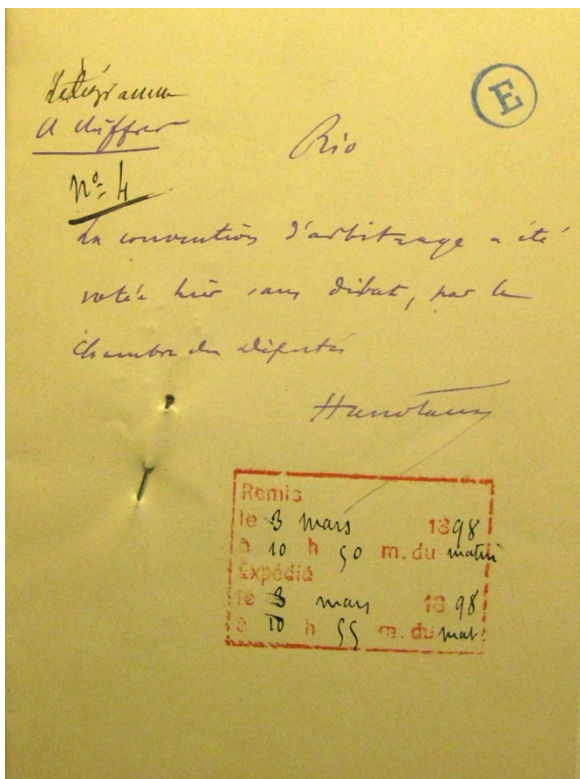 Télégramme
E
A chiffrer
Rio
No 4
La convention d'arbitrage a été
votée hier sans débat, par la
Chambre des Députés
Hanotaux
Remis
le 3 mars 1898
à 10 h 50 m. du matin
Expédié
le 3 mars 1898
à 10 h 55 m. du mat.